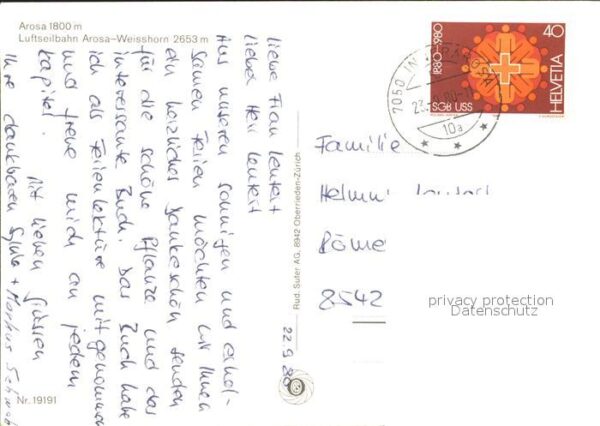 Arosa 1800 m
Luftseilbahn Arosa–Weisshorn 2653 m
22.9.80
Liebe Frau Lentert
lieber Herr Lentert
Aus unseren sonnigen und erhol-
samen Ferien möchten wir Ihnen
ein herzliches Dankeschön senden
für die schöne Pflanze und das
interessante Buch. Das Buch habe
ich als Ferienlektüre mitgenommen
und freue mich an jedem
Kapitel.
Mit lieben Grüssen
Ihre dankbaren Sylvia + Markus Schwab
Nr. 19191
Rud. Suter AG, 8942 Oberrieden-Zürich
1880–1980
SGB USS
40
HELVETIA
7050
10a
Familie
Helmut
Röme
8542
privacy protection
Datenschutz